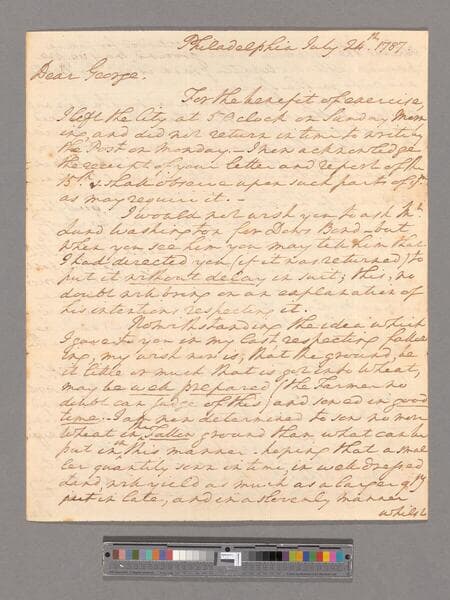 Philadelphia July 24th. 1787.
Dear George.
For the benefit of exercise,
I left the City at 5 Oclock on Sunday Morn
ing, and did not return in time to write by
the Post on Monday. – I now acknowledge
the receipt of your letter and report of the
15th. & shall observe upon such parts of ym.
as may require it. –
I would not wish you to ask Mr.
Lund Washington for Doh's Bond – but
when you see him you may tell him that
I had directed you (if it was returned) to
put it without delay in suit; this, no
doubt will bring on an explanation of
his intentions respecting it.
Notwithstanding the idea which
I gave to you in my last, respecting fallow
ing, my wish now is, that the ground, be
it little or much that is got into Wheat,
may be well prepared (the Farmer no
doubt can judge of this) and sowed in good
time. – I am now determined to sow no more
Wheat in the Fallow ground than what can be
put in, in this manner – hoping that a smal
ler quantity sown in time, in well dressed
Land, will yield as much as a larger qty
put in late, and in a slovenly manner
whilst